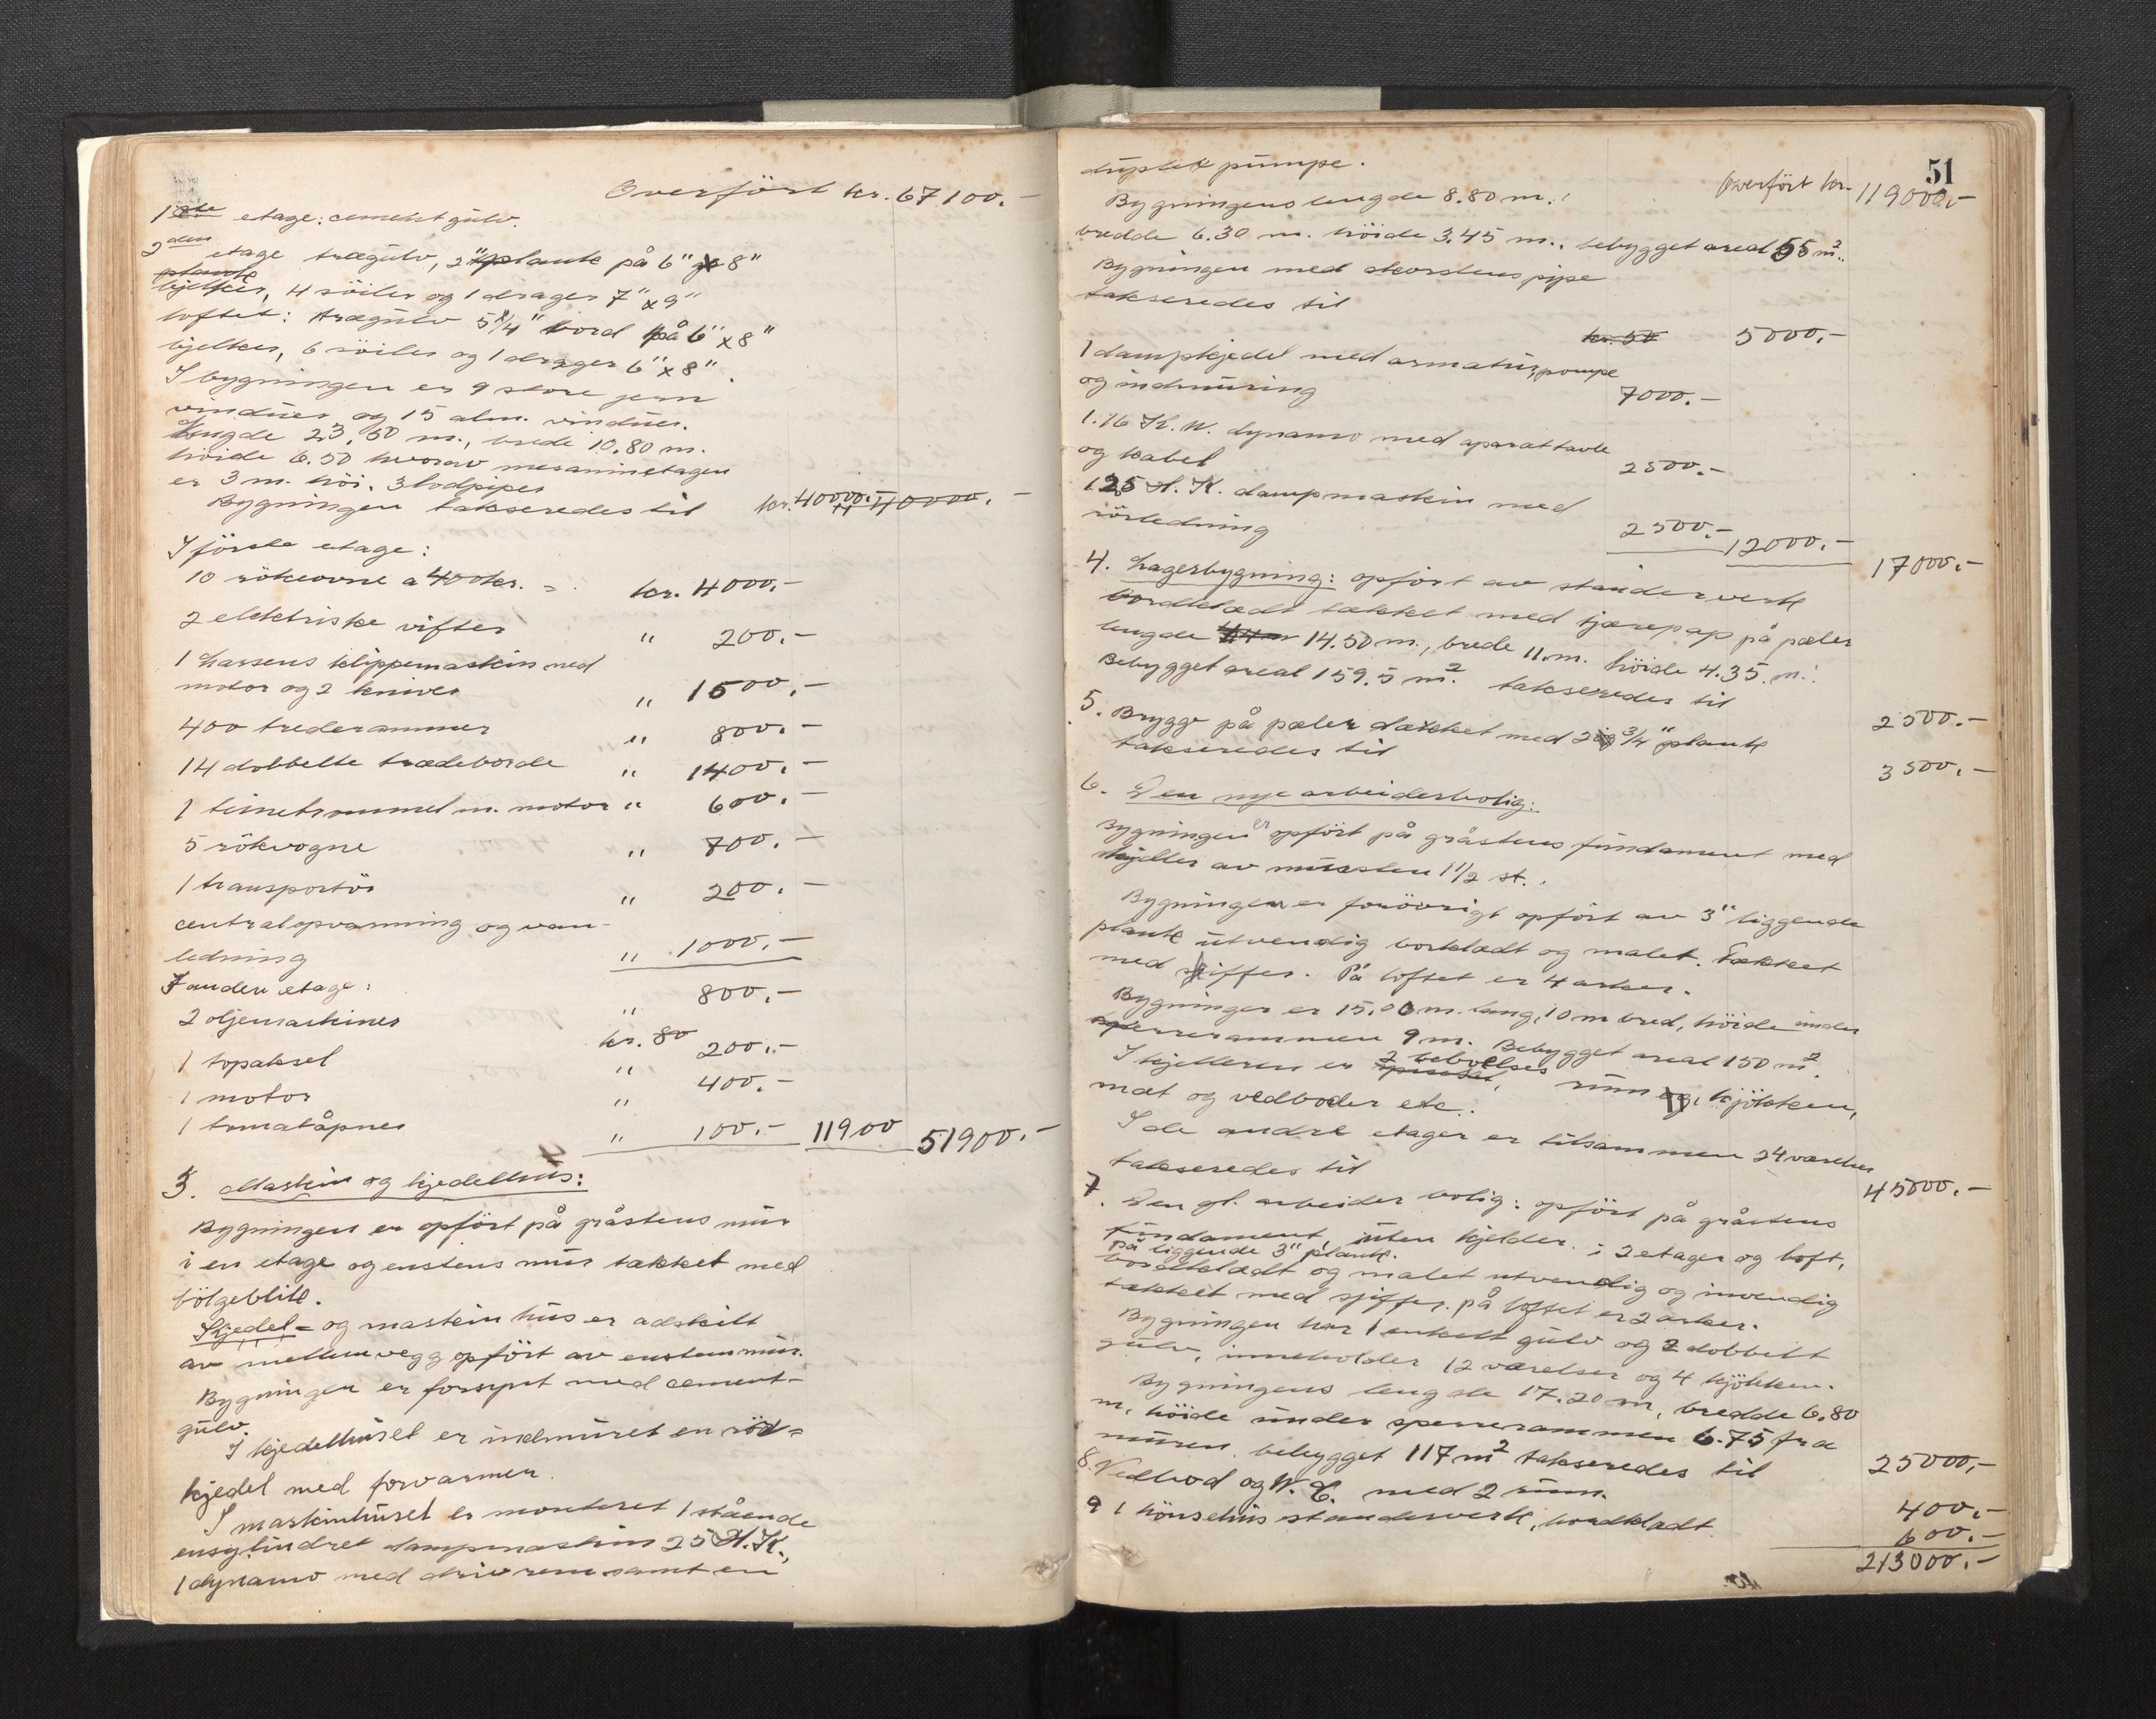 Overført kr. 67100.-
1ste etage: cementgulv.
2den etage trægulv, 2" planke på 6" x 8"
planke
bjelker, 4 söiler og 1 drager 7" x 9"
loftet: trægulv 5/4" bord på 6" x 8"
bjelker, 6 söiler og 1 drager 6" x 8".
I bygningen er 9 store jern
vinduer og 15 alm. vinduer.
Længde 23,50 m., brede 10.80 m.
höide 6.50 hvorav mesaninetagen
er 3 m. höi. 3 lodpiper
Bygningen takseredes til kr. 40000.- 40000.-
I förste etage:
10 rökeovne a 400 kr. = kr. 4000.-
2 elektriske vifter " 200.-
1 Larsens klippemaskin med
motor og 2 kniver " 1500.-
400 trederammer " 800.-
14 dobbelte trædeborde " 1400.-
1 tinetrommel m. motor " 600.-
5 rökvogne " 700.-
1 transportör " 200.-
centralopvarming og van-
ledning " 1000.-
I anden etage:
2 oljemaskiner " 800.-
kr. 80
1 topaksel " 200.-
1 motor " 400.-
1 tomatåpner " 100.- 11900 51900.-
3. Maskin og kjedelhus:
Bygningen er opfört på gråstens mur
i en etage og enstens mur takket med
bölgeblik.
Kjedel- og maskinhus er adskilt
av mellemvegg opfört av enstens mur.
Bygningen er forsynt med cement-
gulv.
I kjedelhuset er indmuret en rör-
kjedel med forvarmer.
I maskinhuset er monteret 1 stående
ensylindret dampmaskin 25 H.K.,
1 dynamo med drivrem samt en
51
duplex pumpe.
Overfört kr. 119000.-
Bygningens lengde 8.80 m.,
bredde 6.30 m. höide 3.45 m., bebygget areal 55 m².
Bygningen med skorstenspipe
takseredes til kr. 50 5000.-
1 dampkjedel med armatur, pompe
og indmuring 7000.-
1. 16 K.W. dynamo med aparattavle
og kabel 2500.-
1 25 H.K. dampmaskin med
rörledning 2500.- 12000.- 17000.-
4. Lagerbygning: opfört av stenderverk
bordklædt takket med tjærepap på pæler
lengde 14.50 m., brede 11. m. höide 4.35. m.
Bebygget areal 159.5 m². takseredes til 2500.-
5. Brygge på pæler dækket med 2 og 3/4" plank
takseredes til 3500.-
6. Den nye arbeiderbolig:
Bygningen er opfört på gråstens fundament med
kjelder av mursten 1 1/2 st.
Bygningen er forövrigt opfört av 3" liggende
plank utvendig borklædt og malet. Takket
med skiffer. På loftet er 4 arker.
Bygningen er 15.00 m. lang, 10 m bred, höide under
sperrerammen 9 m. Bebygget areal 150 m².
I kjelleren er 2 beboelses rum og kjökken,
mat og vedboder etc.
I de andre etager er tilsammen 24 værelser
takseredes til 45000.-
7. Den gl. arbeider bolig: opfört på gråstens
fundament, uten kjelder i 2 etager og loft,
på liggende 3" plank.
bordklædt og malet utvendig og invendig
takket med sjiffer. på loftet er 2 arker.
Bygningen har 1 enkelt gulv og 2 dobbelt
gulv, inneholder 12 værelser og 4 kjökken.
Bygningens lengde 17.20 m, bredde 6.80
m, höide under sperrerammen 6.75 fra
muren. bebygget 117 m² takseredes til 25000.-
8. Vedbod og W.C. med 2 rum. 400.-
9 1 hönsehus stenderverk, bordklædt 600.-
213000.-